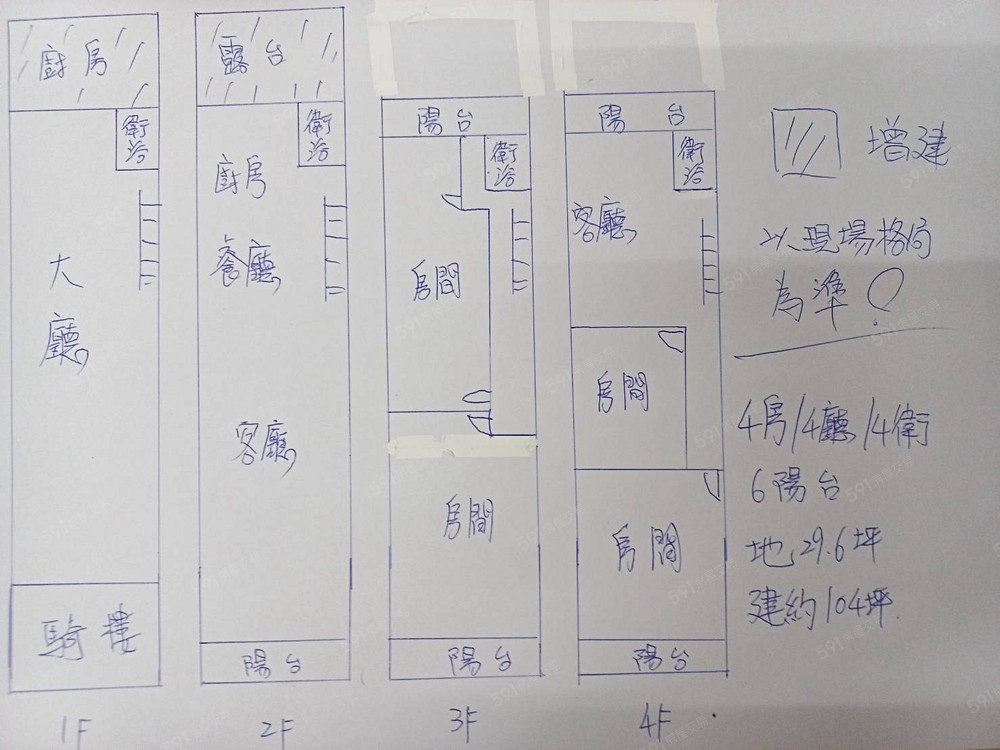 廚房
衛浴
大廳
騎樓
1F
露台
衛浴
廚房
餐廳
客廳
陽台
2F
陽台
衛浴
房間
房間
陽台
3F
陽台
衛浴
客廳
房間
房間
陽台
4F
增建
以現場格局
為準!
4房/4廳/4衛
6陽台
地29.6坪
建約104坪